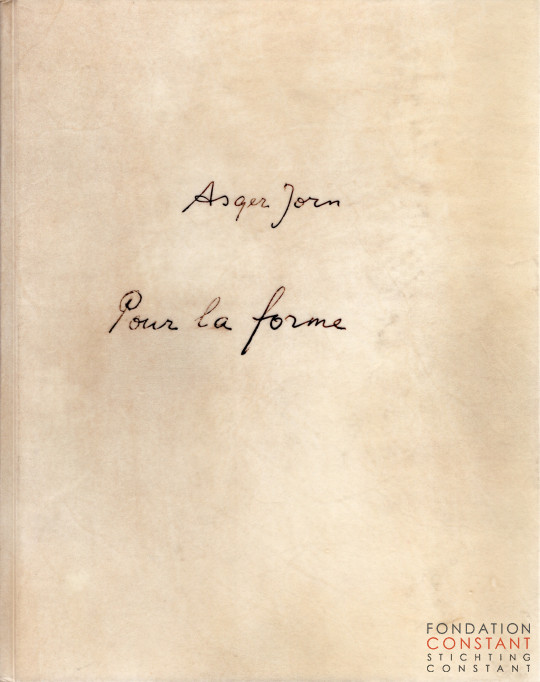 Asger Jorn
Pour la forme
FONDATION
CONSTANT
STICHTING
CONSTANT